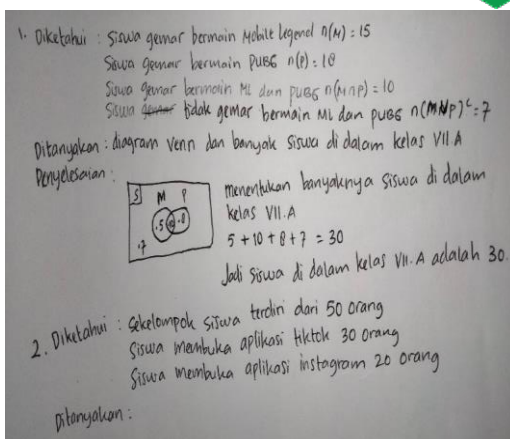 1. Diketahui : Siswa gemar bermain Mobile Legend n(M) : 15
Siswa gemar bermain PUBG n(P) : 18
Siswa gemar bermain ML dan PUBG n(M∩P) = 10
Siswa gemar tidak gemar bermain ML dan PUBG n(M∩P)ᶜ = 7
Ditanyakan : diagram venn dan banyak siswa di dalam kelas VII A
Penyelesaian :
S M P
.5 .8
.7
menentukan banyaknya siswa di dalam
kelas VII.A
5 + 10 + 8 + 7 = 30
Jadi siswa di dalam kelas VII.A adalah 30.
2. Diketahui : Sekelompok siswa terdiri dari 50 orang
Siswa membuka aplikasi tiktok 30 orang
Siswa membuka aplikasi instagram 20 orang
Ditanyakan :